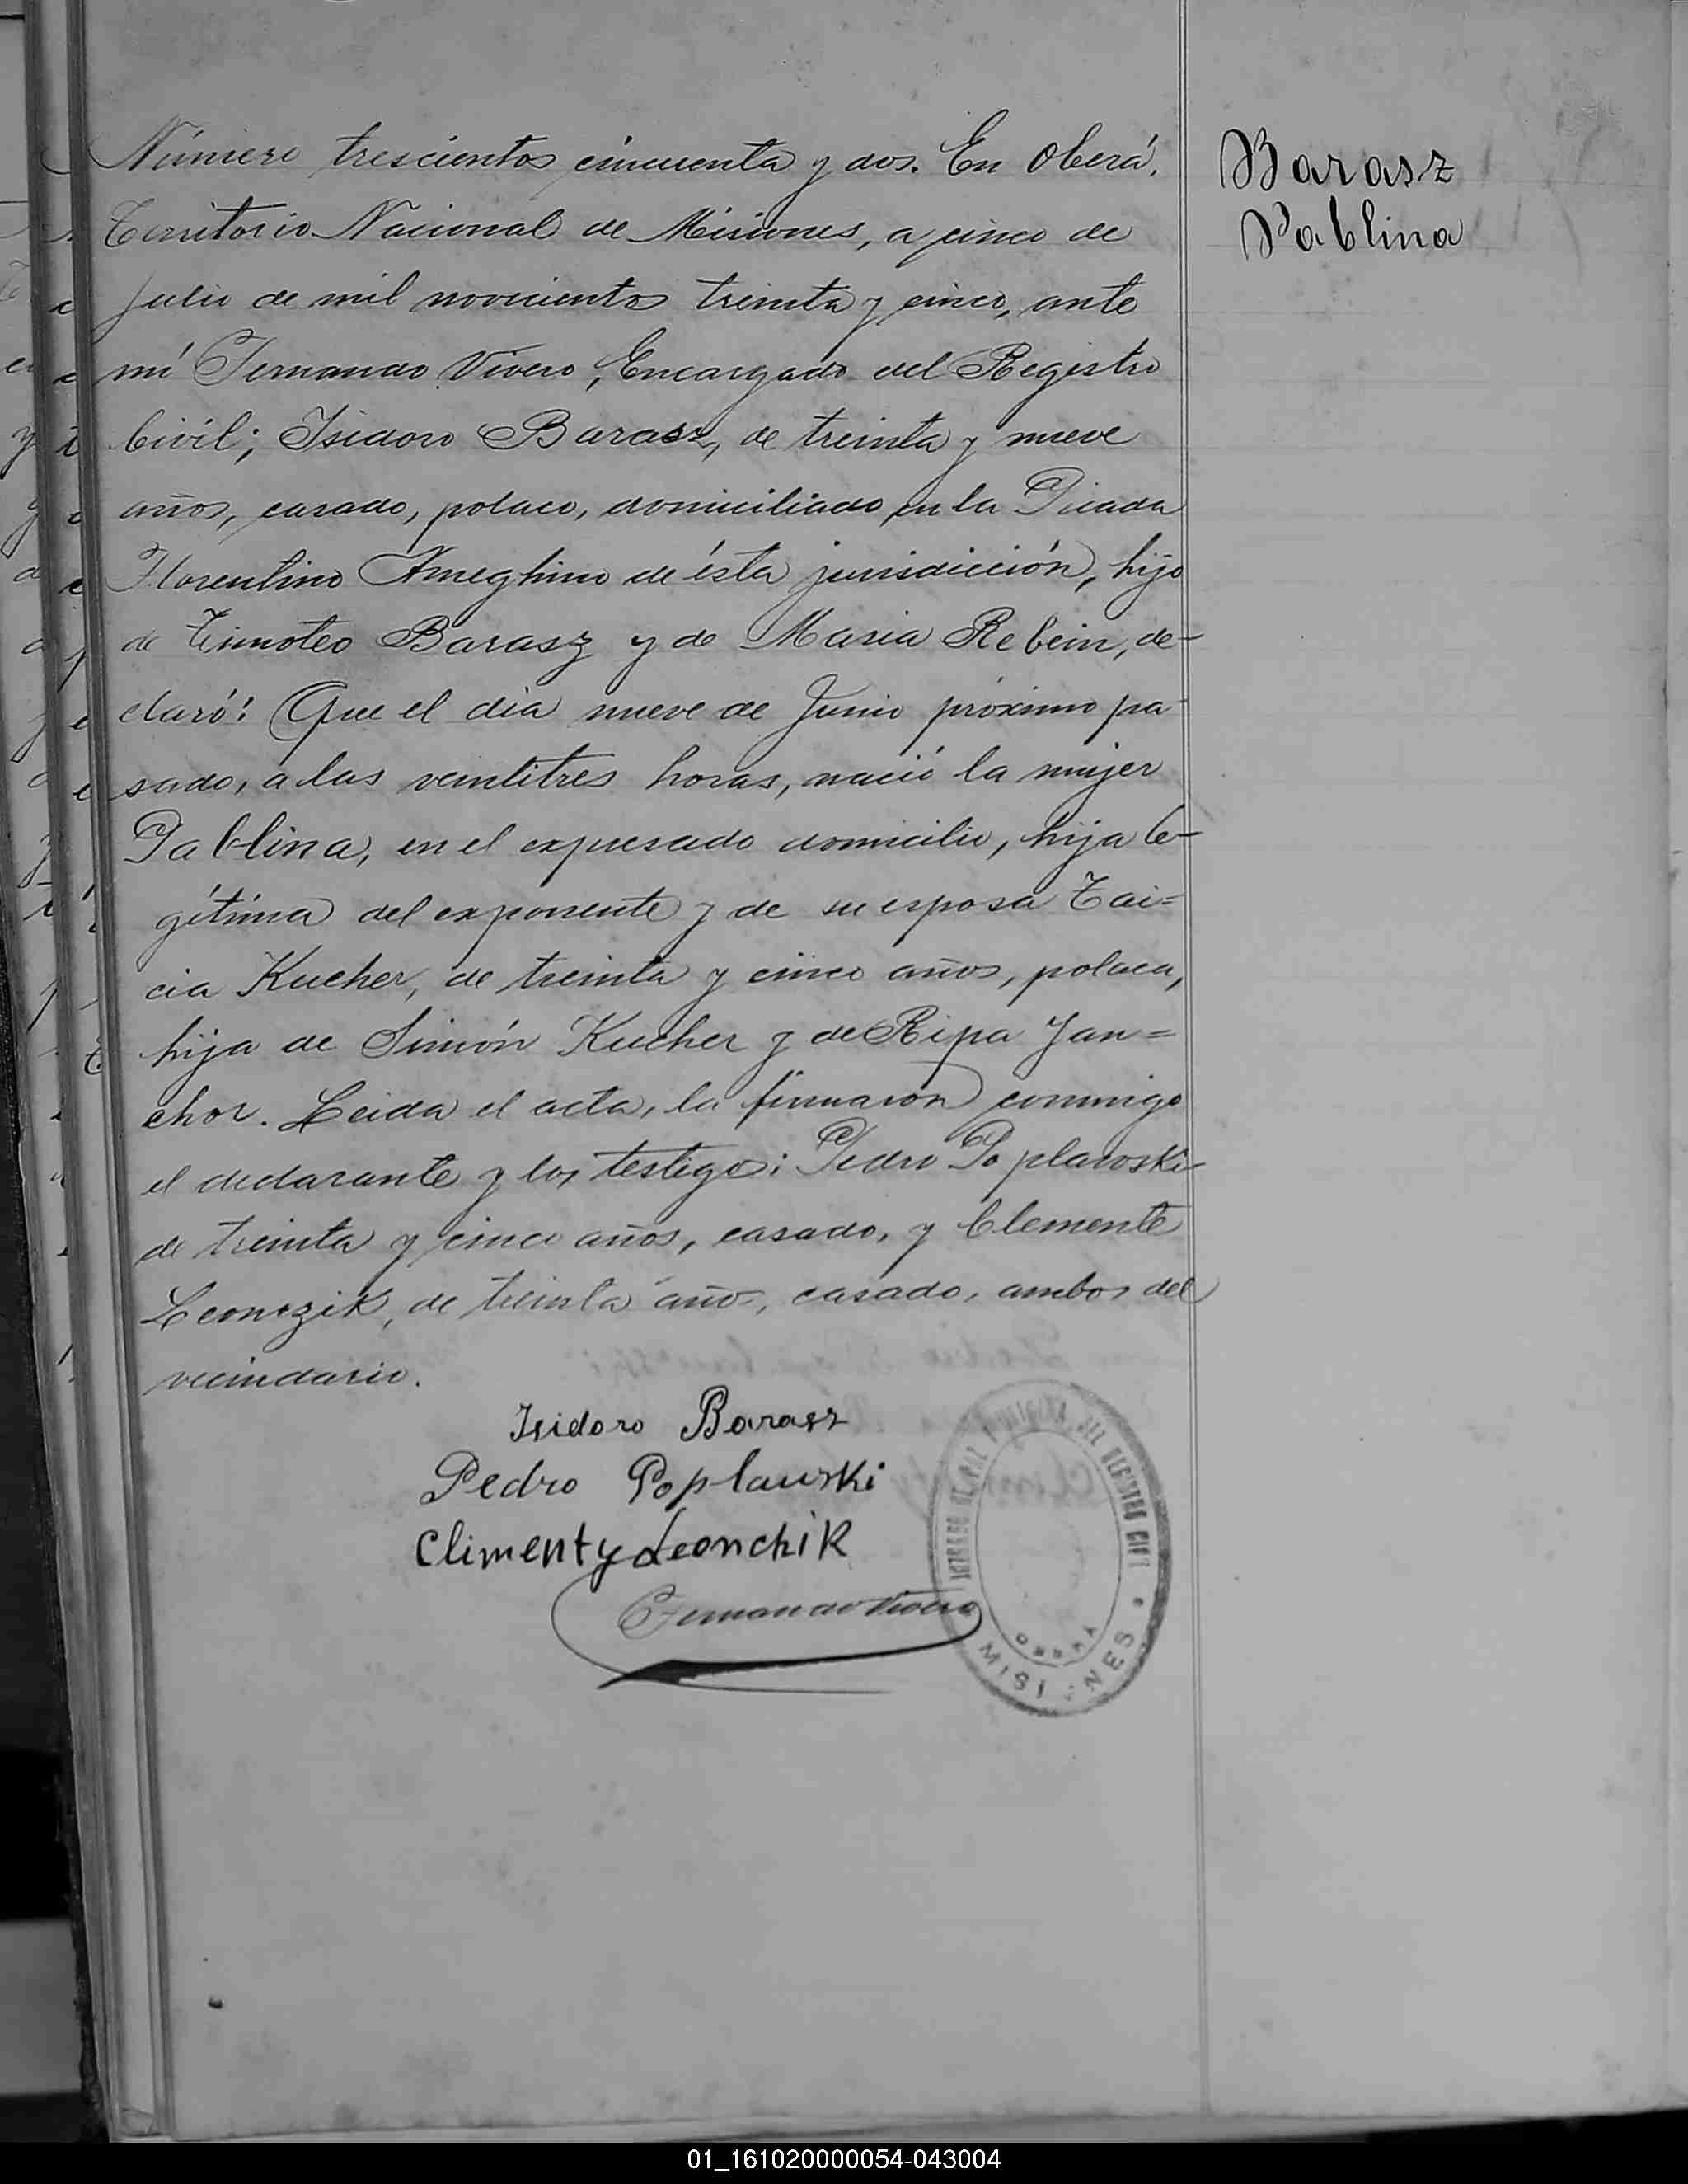 Número trescientos cincuenta y dos. En Oberá,
Territorio Nacional de Misiones, a cinco de
Julio de mil novecientos treinta y cinco, ante
mí Fernando Vivero, Encargado del Registro
Civíl; Isidoro Barasz, de treinta y nueve
años, casado, polaco, domiciliado en la Picada
Florentino Ameghino de ésta jurisdicción, hijo
de Timoteo Barasz y de Maria Rebein, de-
claró: Que el dia nueve de Junio próximo pa-
sado, a las veintitres horas, nació la mujer
Pablina, en el expresado domicilio, hija le-
gítima del exponente y de su esposa Tai=
cia Kucher, de treinta y cinco años, polaca,
hija de Simón Kucher y de Ripa Jan=
chor. Leida el acta, la firmaron conmigo
el declarante y los testigos: Pedro Poplawski
de treinta y cinco años, casado, y Clemente
Leonczik, de treinta años, casado, ambos del
vecindario.
Isidoro Barasz
Pedro Poplauski
Climenty Leonchik
Fernando Vivero
JUZGADO DE PAZ Y OFICINA DEL REGISTRO CIVIL
OBERÁ
MISIONES
Barasz
Pablina
01_161020000054-043004